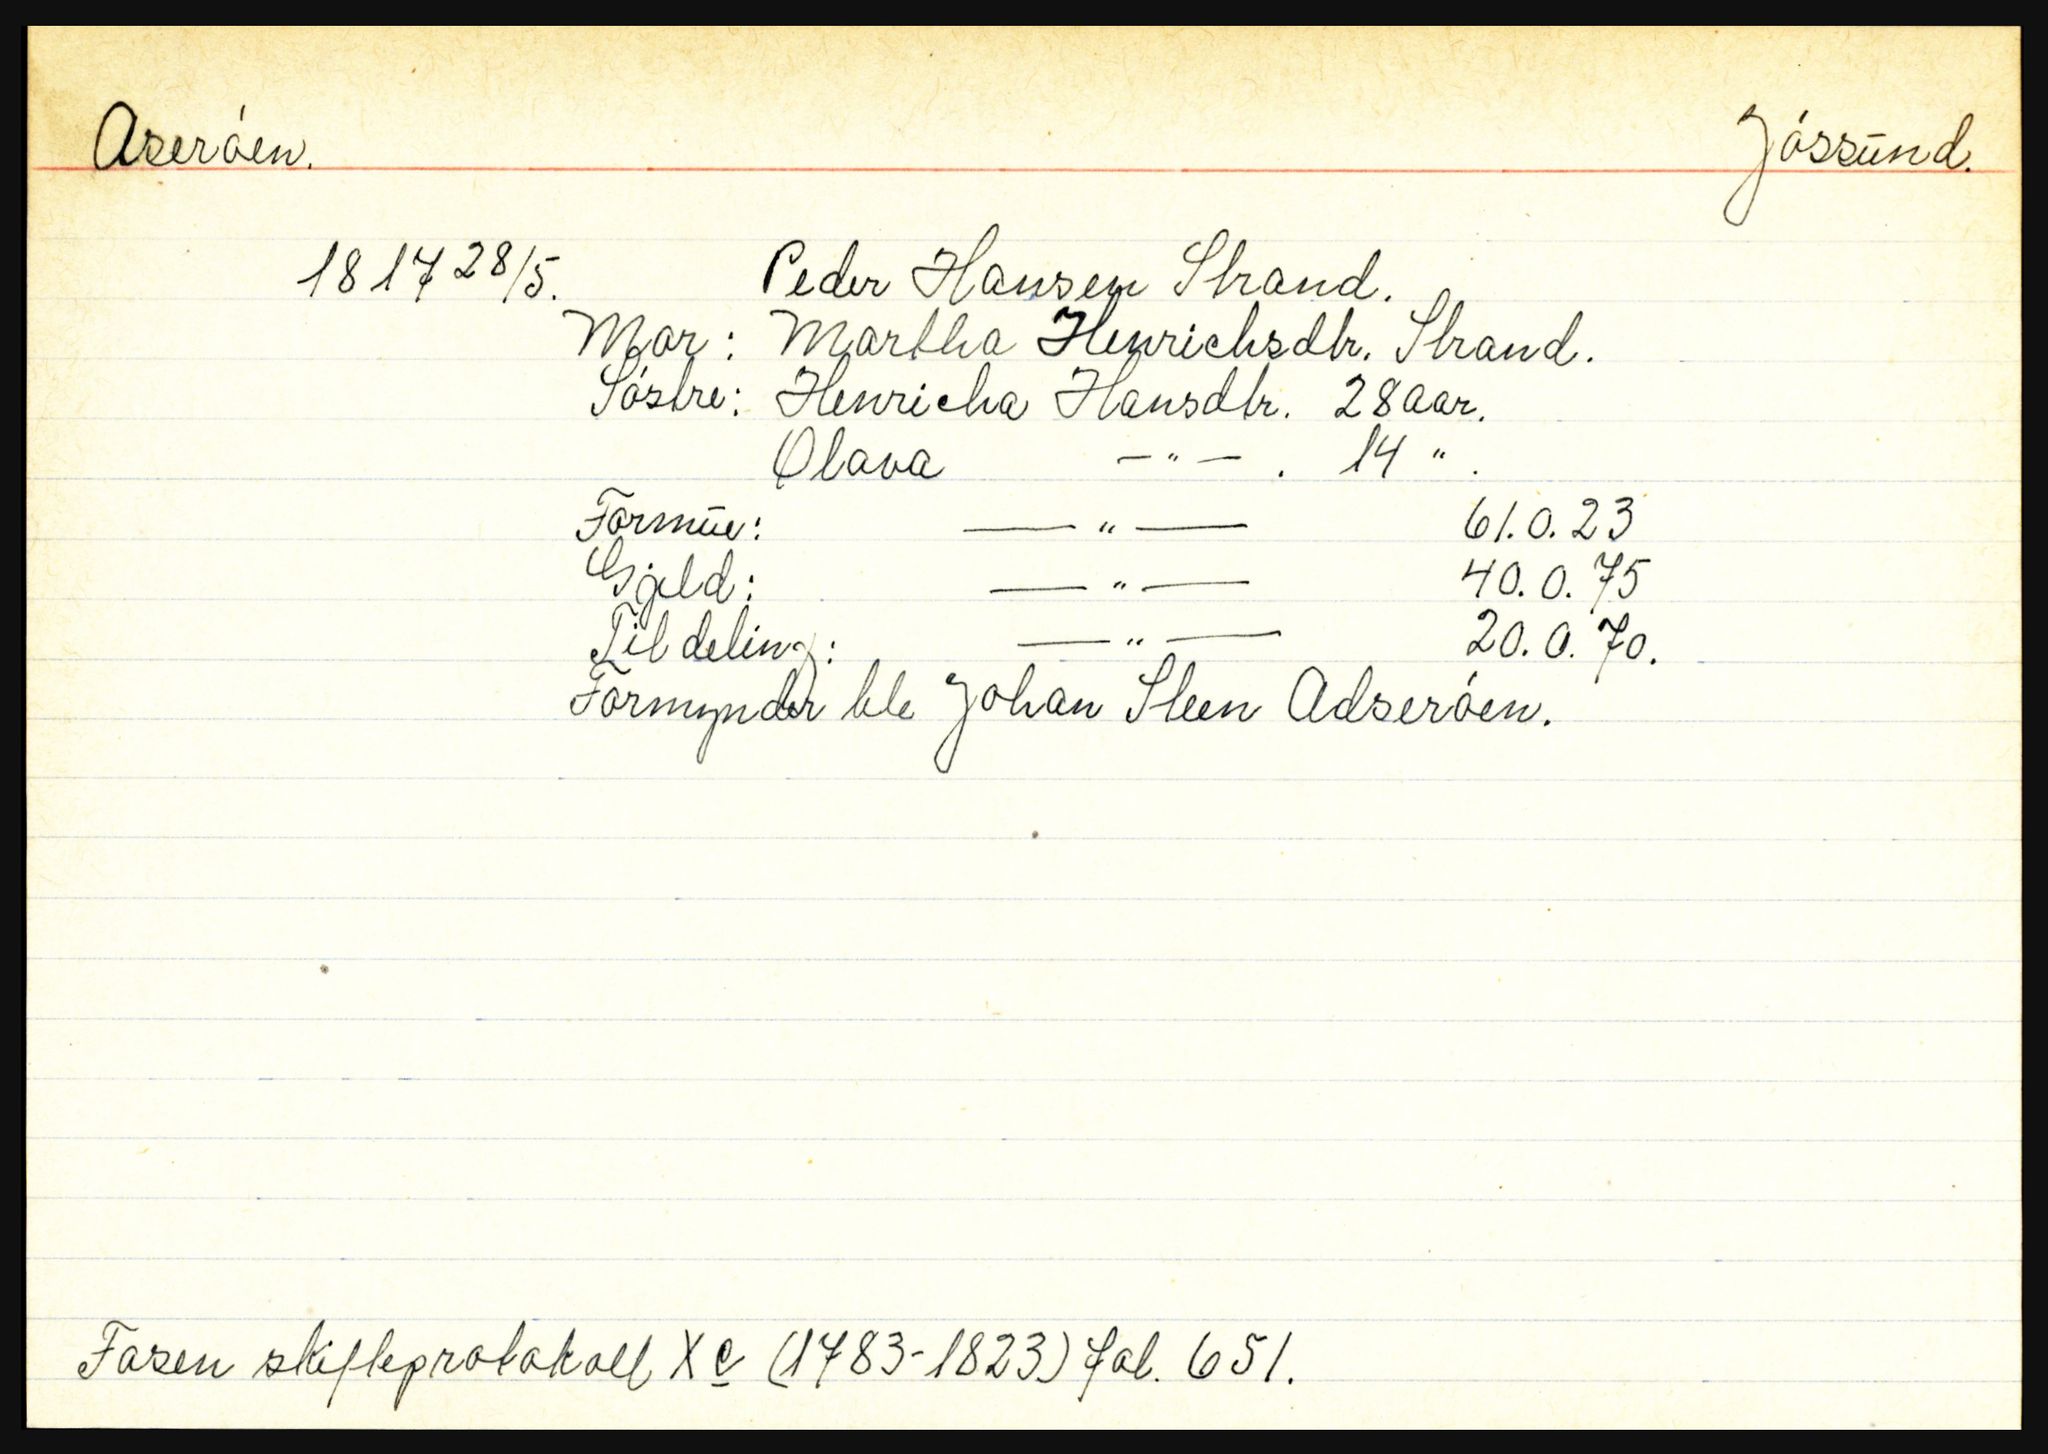 Aseróen. Jóssund.
1817 28/5. Peder Hansen Strand.
Mor: Martha Henrichsdtr. Strand.
Sóstre: Henricha Hansdtr. 28 aar.
Olava — " — . 14 " .
Formue: — " — 61.0.23
Gjeld: — " — 40.0.75
Til deling: — " — 20.0.70.
Formynder ble Johan Steen Adseróen.
Fosen skifteprotokoll X c (1783-1823) fol. 651.